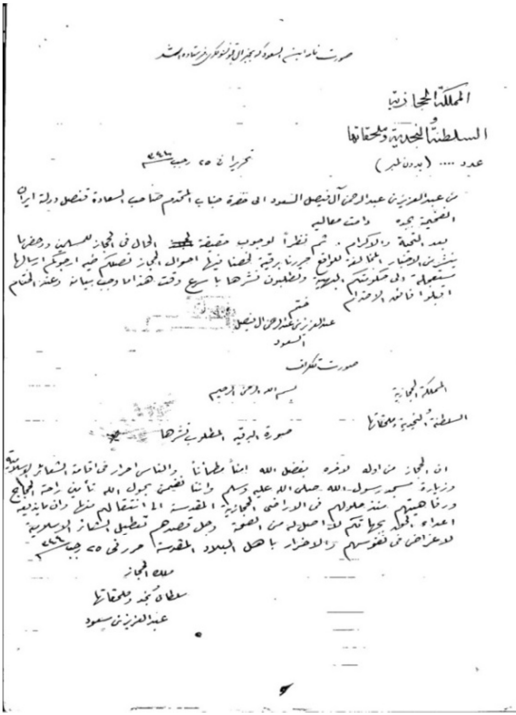 صورت نامه ابن السعود که بجنرال قونسولگری فرستاده شد
المملكة الحجازية
والسلطنة النجدية وملحقاتها
عدد .... (بدون نمبر) تحريرا في ٢٥ رجب ٣٤٤
من عبدالعزيز بن عبدالرحمن آل فيصل السعود الى حضرة جناب المحترم صاحب السعادة قنصل دولة ايران
الفخيمة بجده دامت معاليه
بعد التحية والاكرام. ثم نظراً لوجوب حقيقة الحال في الحجاز للمسلمين ورفضها
الاخبار المخالفة للواقع حررنا برقية لخصنا فيها احوال الحجاز تصلكم طيه ارجوكم ارسالها
مستعجلة الى حكومتكم البهية وتطلبون نشرها باسرع وقت هذا ما وجب بيانه وعند الختام
اقبلوا فائق الاحترام
ختم
عبدالعزيز بن عبدالرحمن آل فيصل
السعود
صورت تلگراف
المملكة الحجازية بسم الله الرحمن الرحيم
السلطنة النجدية وملحقاتها
صورة البرقية المطلوب نشرها
ان الحجاز من اوله لاخره بفضل الله امناً مطمئناً والناس احرار في اقامة الشعائر الاسلامية
وزيارة مسجد رسول الله صلى الله عليه وسلم واننا نضمن بحول الله تأمين راحة الحجاج
ورفاهيتهم منذ حلولهم في الاراضي الحجازية المقدسة الى انتقالهم منها وان ما يذيعه
اعداء لا اصل له من الصحة وجل قصدهم تعطيل الشعائر الاسلامية
لاغراض في نفوسهم والاضرار باهل البلاد المقدسة حرر في ٢٥ رجب ٣٤٤
ملك الحجاز
سلطان نجد وملحقاتها
عبدالعزيز بن سعود